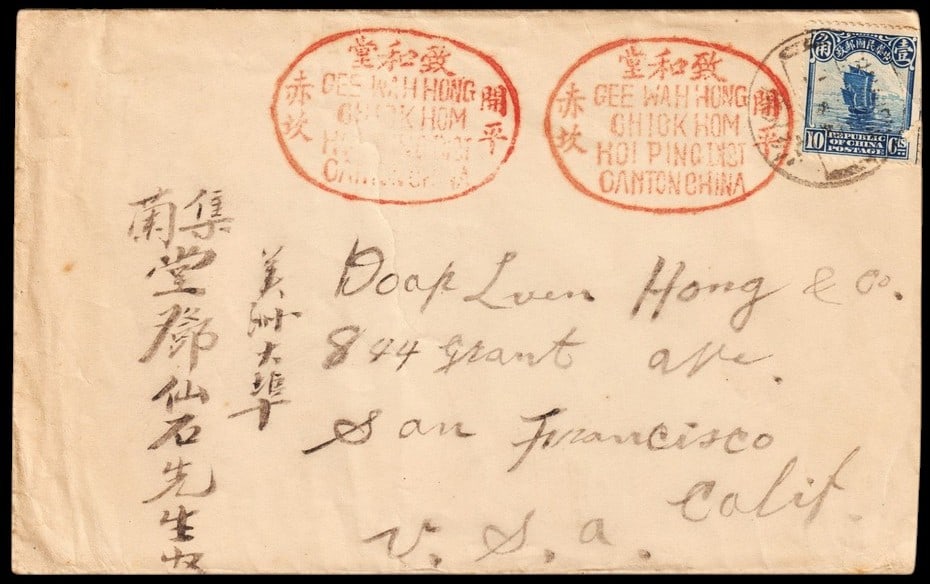 致和堂
開平
GEE WAH HONG
CHICK HOM
DIST
CANTON CHINA
赤坎
致和堂
開平
GEE WAH HONG
CHICK HOM
HOI PING DIST
CANTON CHINA
赤坎
中華民國郵政
壹角
10 Cts
REPUBLIC
OF CHINA
POSTAGE
Doap Luen Hong & Co.
844 Grant Ave.
San Francisco
Calif.
U. S. A.
美洲大埠
集南堂鄧仙石先生收